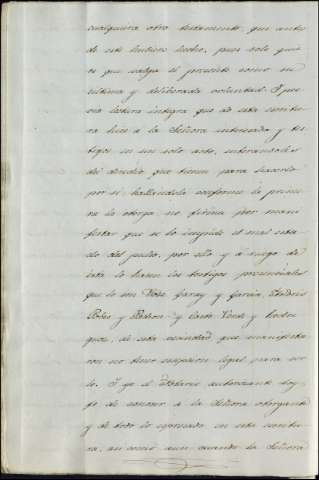 cualquiera otro testamento que antes
de este hubiere hecho, pues solo quie
re que valga el presente como su
ultima y deliberada voluntad. Y pre
via lectura integra que de esta escritu
ra hice á la Señora interesada y tes
tigos en un solo acto, enterándoles
del derecho que tienen para hacerlo
por si, hallándola conforme la prime
ra la otorga, no firma por mani
festar que se lo impide el mal esta
do del pulso, por ella y á ruego de
esta lo hacen los testigos presenciales
que lo son Garay y Garcia, Isidoro
y y Verde y Rodri
guez, de esta vecindad que manifiesta
ron no tener escepcion legal para ser
lo. Y yo el Notario autorizante doy
fé de conocer á la Señora otorgante
y de todo lo espresado en esta escritu
ra, asi como aun cuando la Señora